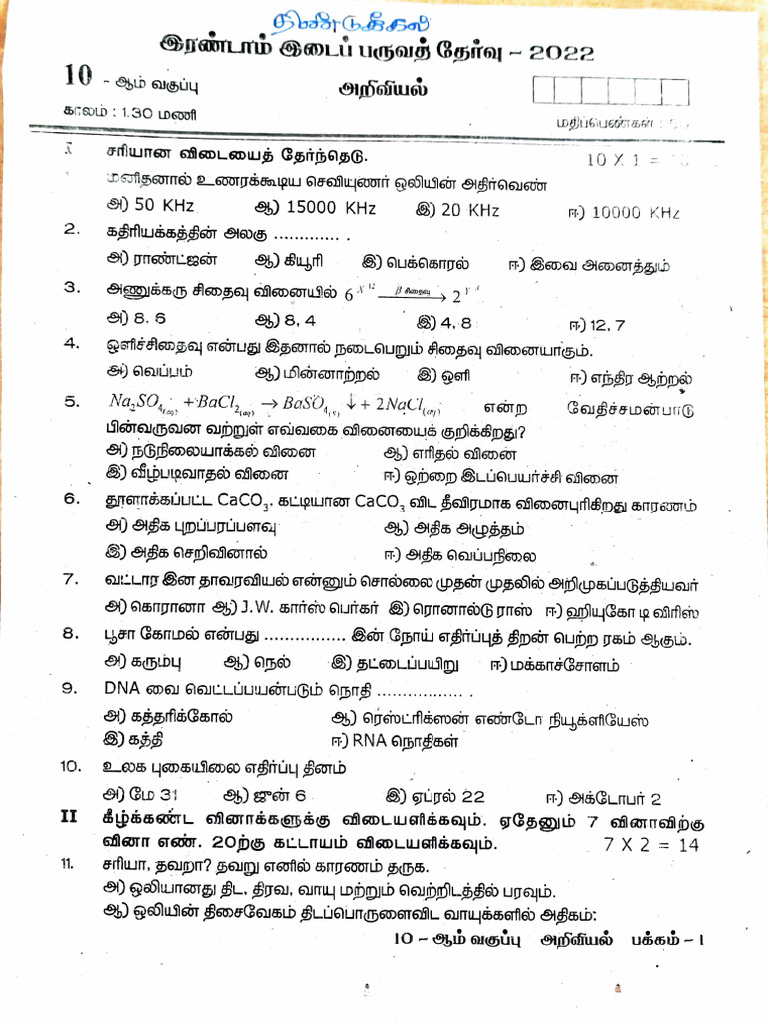 திண்டுக்கல்
இரண்டாம் இடைப் பருவத் தேர்வு – 2022
10 - ஆம் வகுப்பு அறிவியல்
காலம் : 1.30 மணி மதிப்பெண்கள் :
I சரியான விடையைத் தேர்ந்தெடு. 10 X 1 = 10
1 மனிதனால் உணரக்கூடிய செவியுணர் ஒலியின் அதிர்வெண்
அ) 50 KHz ஆ) 15000 KHz இ) 20 KHz ஈ) 10000 KHz
2. கதிரியக்கத்தின் அலகு ............. .
அ) ராண்ட்ஜன் ஆ) கியூரி இ) பெக்கொரல் ஈ) இவை அனைத்தும்
3. அணுக்கரு சிதைவு வினையில் 6^{X^{12}} \xrightarrow{β சிதைவு} 2^{Y^{x}}
அ) 8. 6 ஆ) 8, 4 இ) 4, 8 ஈ) 12, 7
4. ஒளிச்சிதைவு என்பது இதனால் நடைபெறும் சிதைவு வினையாகும்.
அ) வெப்பம் ஆ) மின்னாற்றல் இ) ஒளி ஈ) எந்திர ஆற்றல்
5. Na₂SO₄₍aq₎ + BaCl₂₍aq₎ → BaSO₄₍s₎ ↓ + 2NaCl₍aq₎ என்ற வேதிச்சமன்பாடு
பின்வருவன வற்றுள் எவ்வகை வினையைக் குறிக்கிறது?
அ) நடுநிலையாக்கல் வினை ஆ) எரிதல் வினை
இ) வீழ்படிவாதல் வினை ஈ) ஒற்றை இடப்பெயர்ச்சி வினை
6. தூளாக்கப்பட்ட CaCO₃. கட்டியான CaCO₃ விட தீவிரமாக வினைபுரிகிறது காரணம்
அ) அதிக புறப்பரப்பளவு ஆ) அதிக அழுத்தம்
இ) அதிக செறிவினால் ஈ) அதிக வெப்பநிலை
7. வட்டார இன தாவரவியல் என்னும் சொல்லை முதன் முதலில் அறிமுகப்படுத்தியவர்
அ) கொரானா ஆ) J.W. கார்ஸ் பெர்கர் இ) ரொனால்டு ராஸ் ஈ) ஹியுகோ டி விரிஸ்
8. பூசா கோமல் என்பது ................ இன் நோய் எதிர்ப்புத் திறன் பெற்ற ரகம் ஆகும்.
அ) கரும்பு ஆ) நெல் இ) தட்டைப்பயிறு ஈ) மக்காச்சோளம்
9. DNA வை வெட்டப்பயன்படும் நொதி ................ .
அ) கத்தரிக்கோல் ஆ) ரெஸ்ட்ரிக்ஸன் எண்டோ நியூக்ளியேஸ்
இ) கத்தி ஈ) RNA நொதிகள்
10. உலக புகையிலை எதிர்ப்பு தினம்
அ) மே 31 ஆ) ஜுன் 6 இ) ஏப்ரல் 22 ஈ) அக்டோபர் 2
II கீழ்க்கண்ட வினாக்களுக்கு விடையளிக்கவும். ஏதேனும் 7 வினாவிற்கு
வினா எண். 20ற்கு கட்டாயம் விடையளிக்கவும். 7 X 2 = 14
11. சரியா, தவறா? தவறு எனில் காரணம் தருக.
அ) ஒலியானது திட, திரவ, வாயு மற்றும் வெற்றிடத்தில் பரவும்.
ஆ) ஒலியின் திசைவேகம் திடப்பொருளைவிட வாயுக்களில் அதிகம்:
10 – ஆம் வகுப்பு அறிவியல் பக்கம் – 1